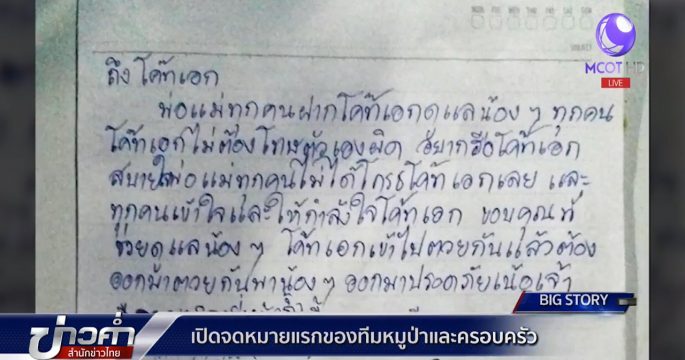 MON TUE WED THU FRI SAT SUN
MCOT HD
LIVE
ถึง โค้ทเอก
พ่อแม่ทุกคนฝากโค้ทเอกดูแลน้อง ๆ ทุกคน
โค้ทเอกไม่ต้องโทษตัวเองผิด
โค้ทเอก
สบายใจพ่อแม่ทุกคนไม่ได้โกรธโค้ทเอกเลย และ
ทุกคนเข้าใจและให้กำลังใจโค้ทเอก ขอบคุณที่
ช่วยดูแลน้อง ๆ โค้ทเอกเข้าไปด้วยกันแล้วต้อง
ออกมาด้วยกันพาน้อง ๆ ออกมาปลอดภัย
BIG STORY
ข่าวค่ำ
สำนักข่าวไทย
เปิดจดหมายแรกของทีมหมูป่าและครอบครัว